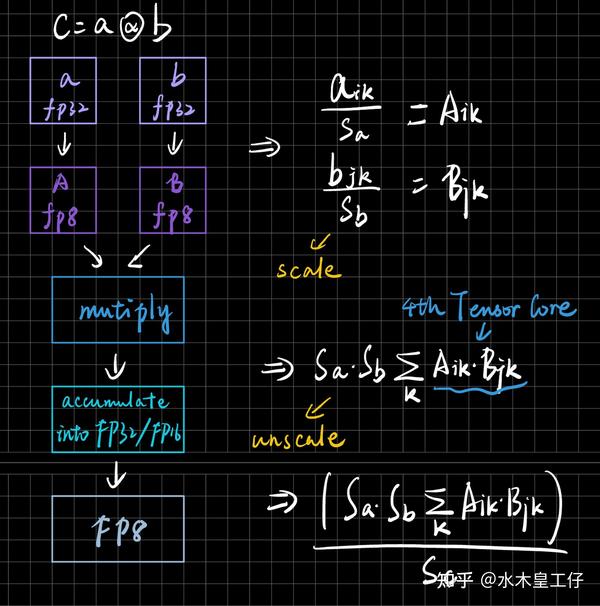 C = a @ b
a
fp32
b
fp32
A
fp8
B
fp8
mutiply
accumulate
into FP32/FP16
FP8
⇒ aik/Sa = Aik
bjk/Sb = Bjk
scale
4th Tensor Core
⇒ Sa·Sb ∑K Aik·Bjk
unscale
⇒ (Sa·Sb ∑K Aik·Bjk)
知乎 @水木皇工仔